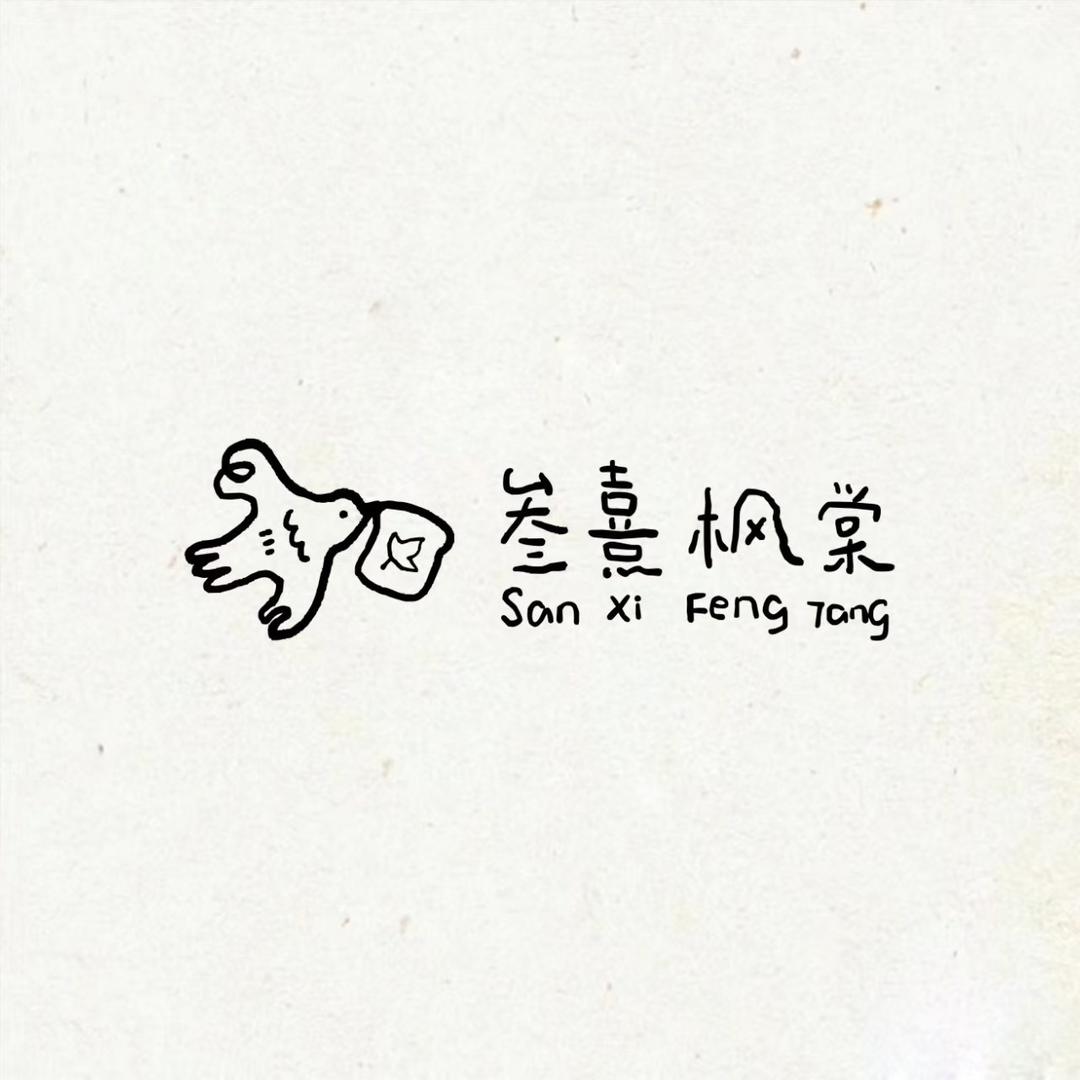 叁熹枫棠
San Xi Feng Tang